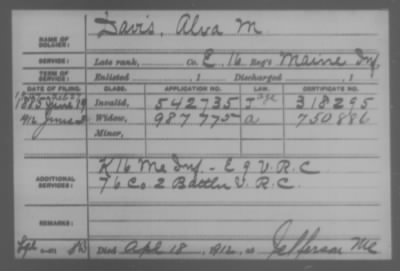 NAME OF SOLDIER: Davis, Alva M.
SERVICE: Late rank, Co. E, 16 Reg't Maine Inf
TERM OF SERVICE: Enlisted , 1 Discharged , 1
DATE OF FILING. CLASS. APPLICATION NO. LAW. CERTIFICATE NO.
1885 June 19 Invalid, 542735 I age 318295
1912 June Widow, 987775 a 750886
Minor,
ADDITIONAL SERVICES: K 16 Me Inf - E 9 V.R.C
76 Co. 2 Battln V.R.C.
REMARKS:
Died Apl 18, 1912, at Jefferson Me